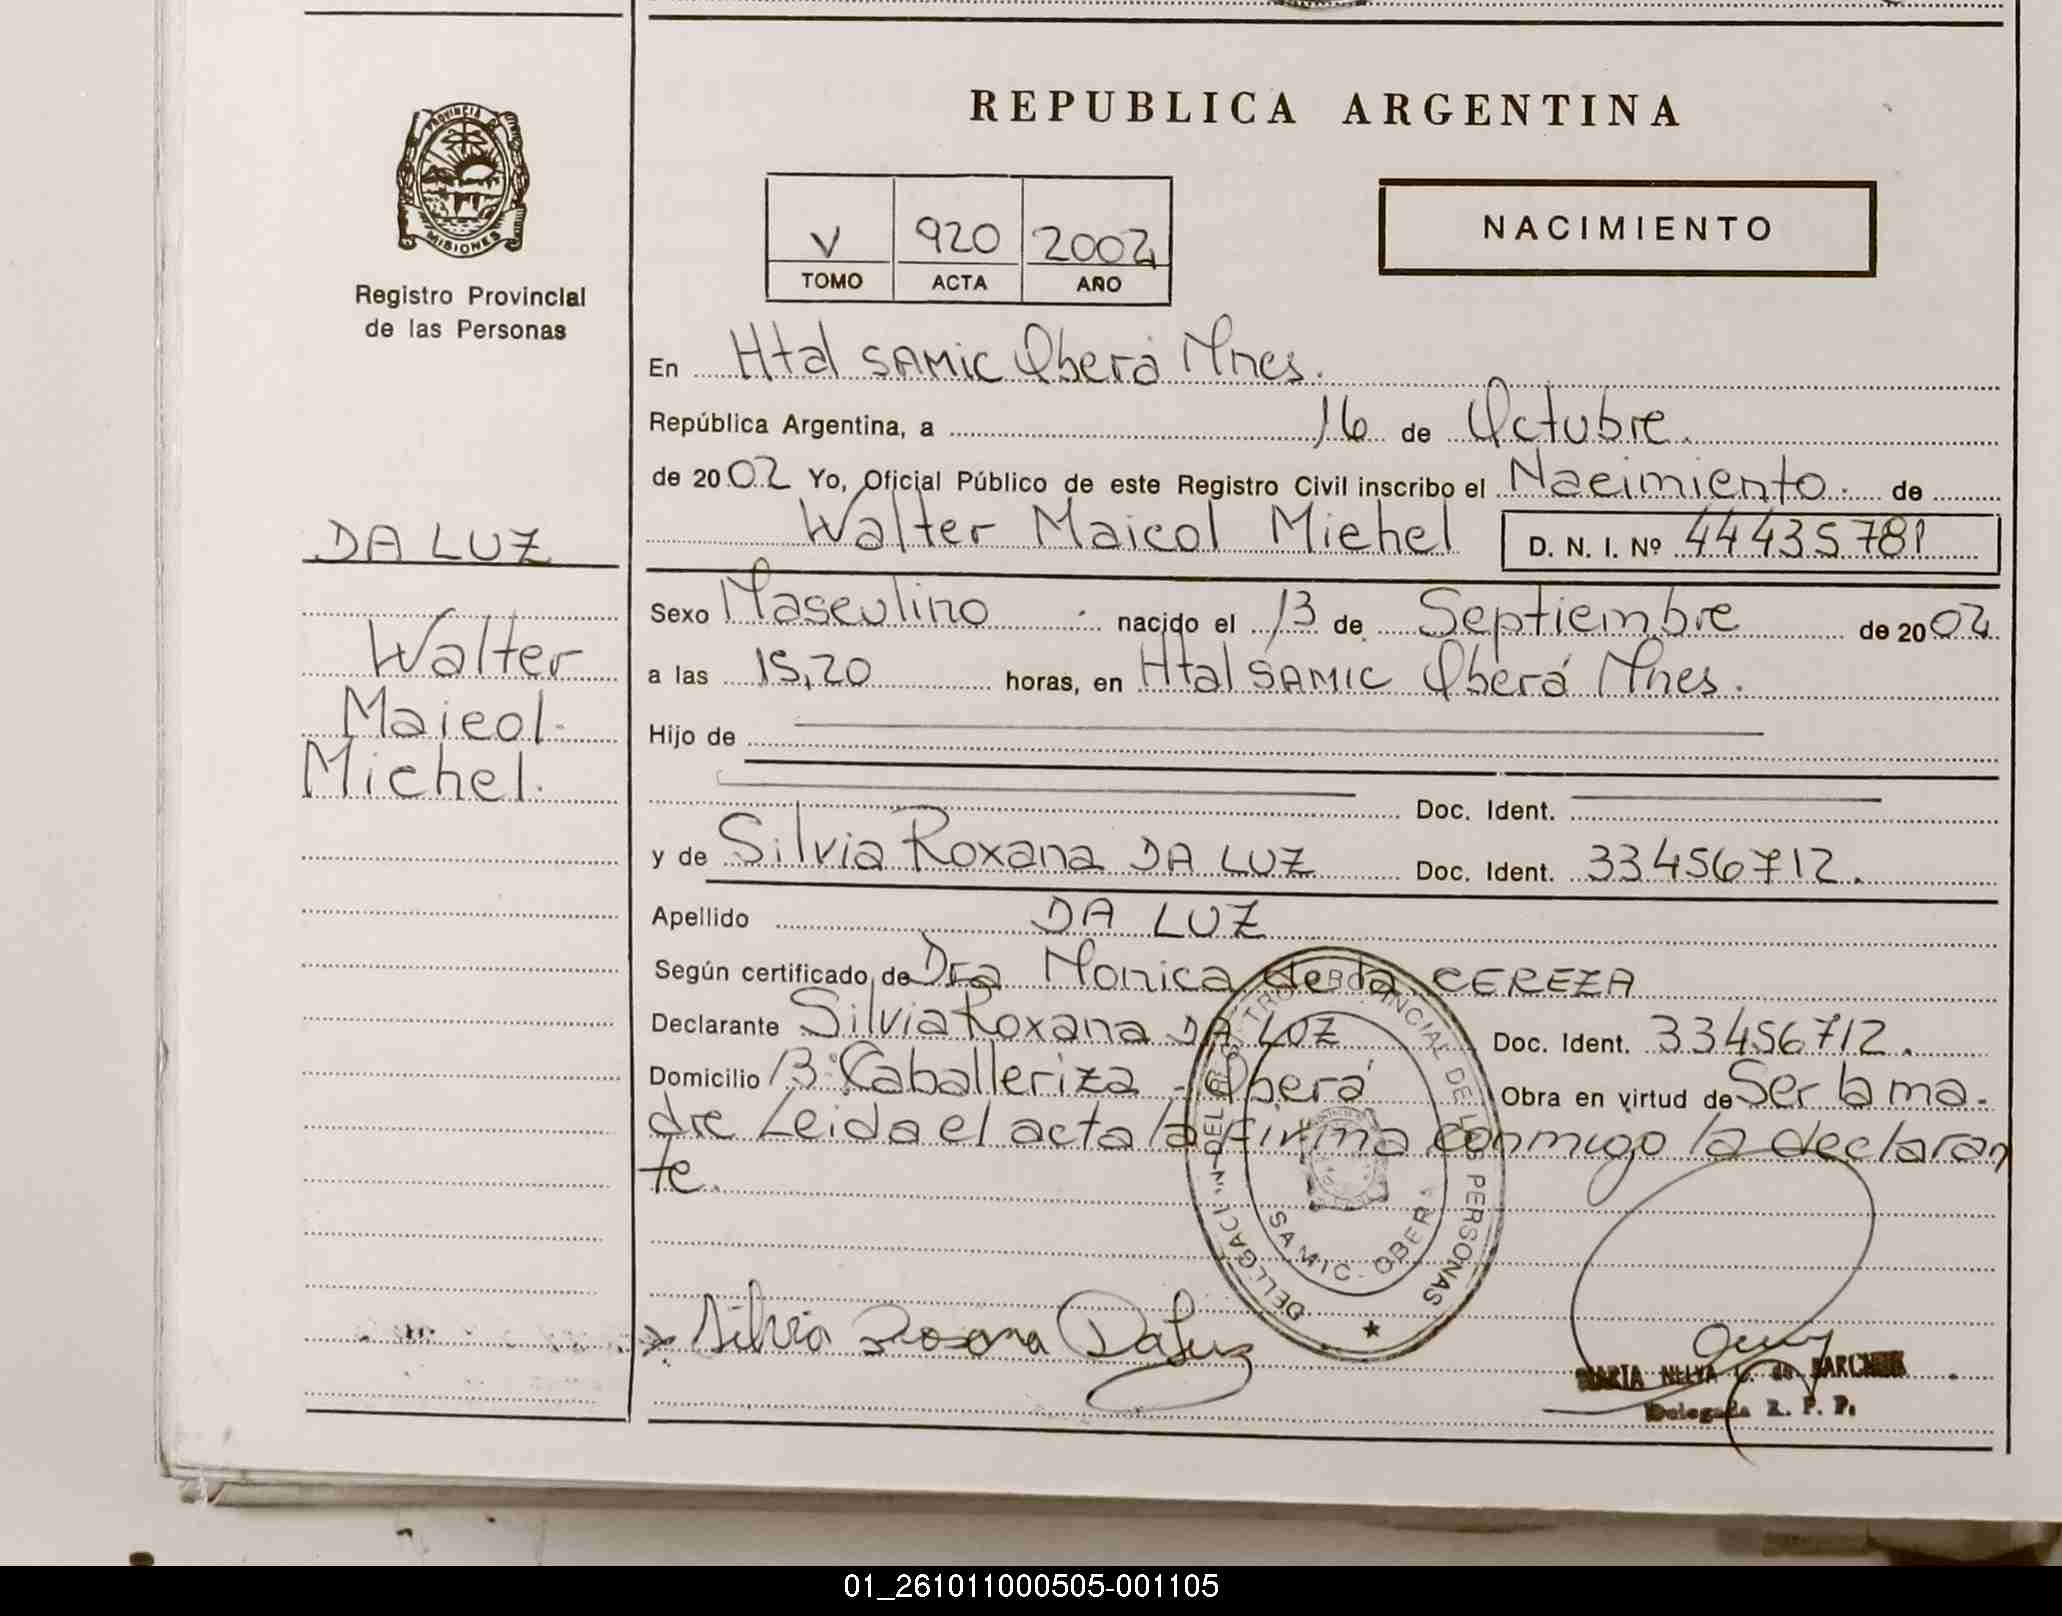 REPUBLICA ARGENTINA
PROVINCIA DE
MISIONES
Registro Provincial
de las Personas
V 920 2002
TOMO ACTA AÑO
NACIMIENTO
En Htal SAMIC Oberá Mnes.
República Argentina, a 16 de Octubre.
de 2002 Yo, Oficial Público de este Registro Civil inscribo el Nacimiento. de
Walter Maicol Michel D. N. I. Nº 44435781
DA LUZ
Walter
Maicol.
Michel.
Sexo Masculino nacido el 13 de Septiembre de 2002
a las 15,20 horas, en Htal SAMIC Oberá Mnes.
Hijo de
Doc. Ident.
y de Silvia Roxana DA LUZ Doc. Ident. 33456712.
Apellido DA LUZ
Según certificado de Dra Monica de la CEREZA
Declarante Silvia Roxana DA LUZ Doc. Ident. 33456712.
Domicilio Bº Caballeriza - Oberá Obra en virtud de Ser la ma-
dre Leida el acta la firma conmigo la declaran
te.
DEL REGISTRO PROVINCIAL DE LAS PERSONAS
SAMIC - OBERA
Silvia Roxana Da Luz
MARIA de
Delegada R. P. P.
01_261011000505-001105